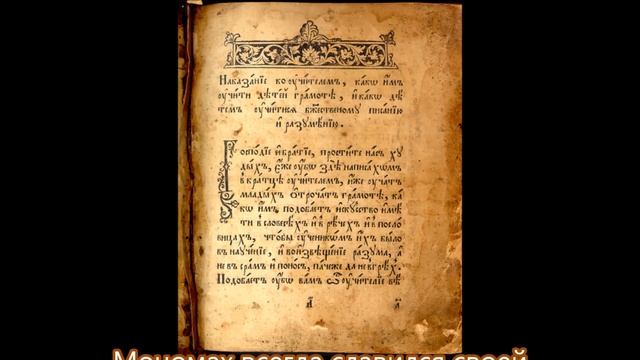 Наказанїе ко оучи́телемъ, ка́кѡ и҆̀мъ
оучи́ти дѣте́й гра́мотѣ, и҆ ка́кѡ дѣ́
темъ оучи́тисѧ бжⷭ҇твеному писа́нїю
и҆ разꙋмѣ́нїю.
Господїе и҆ бра́тїе, прости́те на́съ хꙋ
ды́хъ, є҆́же оу҆́бѡ здѣ̀ написа́хѡмъ
въкра́тцѣ оучи́телемъ, и҆̀же оуча́тъ
млады́хъ ѻ҆троча́тъ гра́мотѣ, ка́
кѡ и҆̀мъ подоба́етъ и҆скꙋ́ство и҆мѣ́
ти въ словесѣ́хъ и҆ въ рѣ́чехъ и҆ въ посло́
вицахъ, что́бы оученикѡ́мъ и҆́хъ бы́ло
въ наꙋче́нїе, и҆ во и҆звѣще́нїе ра́зꙋма, а҆
не въ сра́мъ и҆ поно́съ, па́чеже да не въ грѣ́хъ.
Подоба́етъ оу҆́бѡ ва́мъ ѿ оучи́телїе вѣ
Мономах всегда славился своей